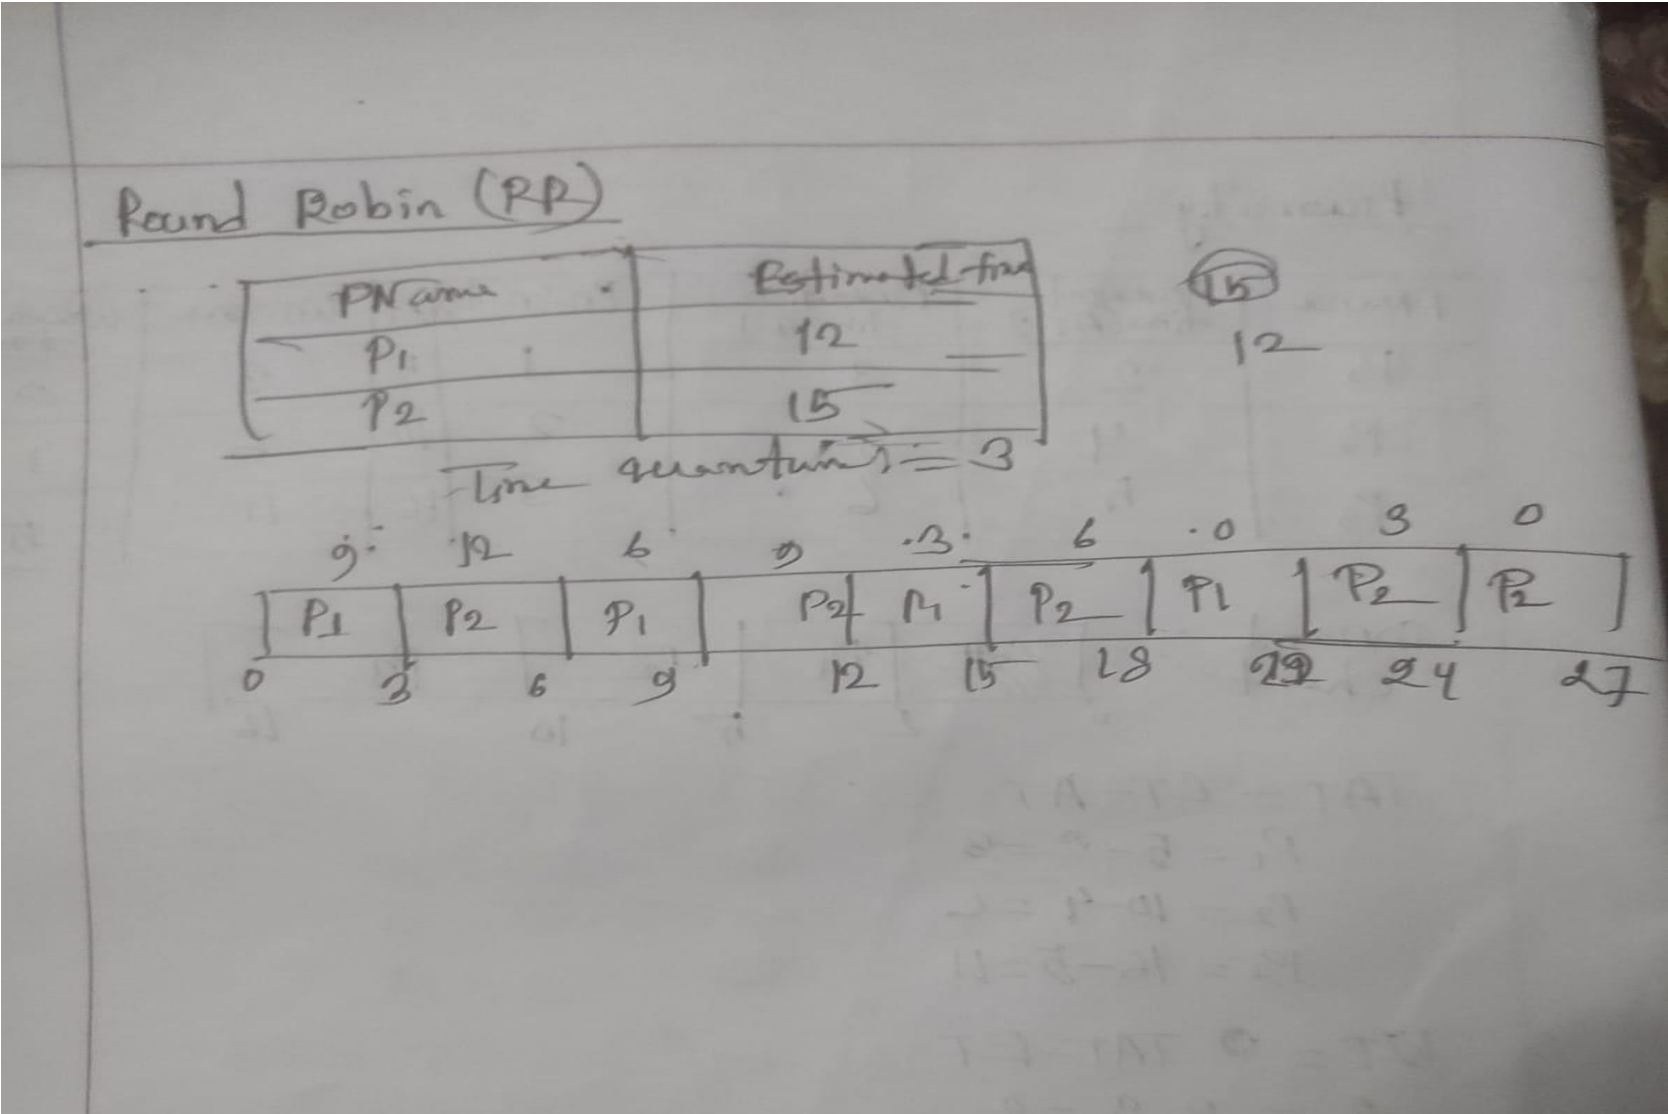 Round Robin (RR)
PName Estimated time
15
P1 12
12
P2 15
Time quantum = 3
9 12 6 9 3 6 0 3 0
P1 P2 P1 P2 P1 P2 P1 P2 P2
0 3 6 9 12 15 18 24 27